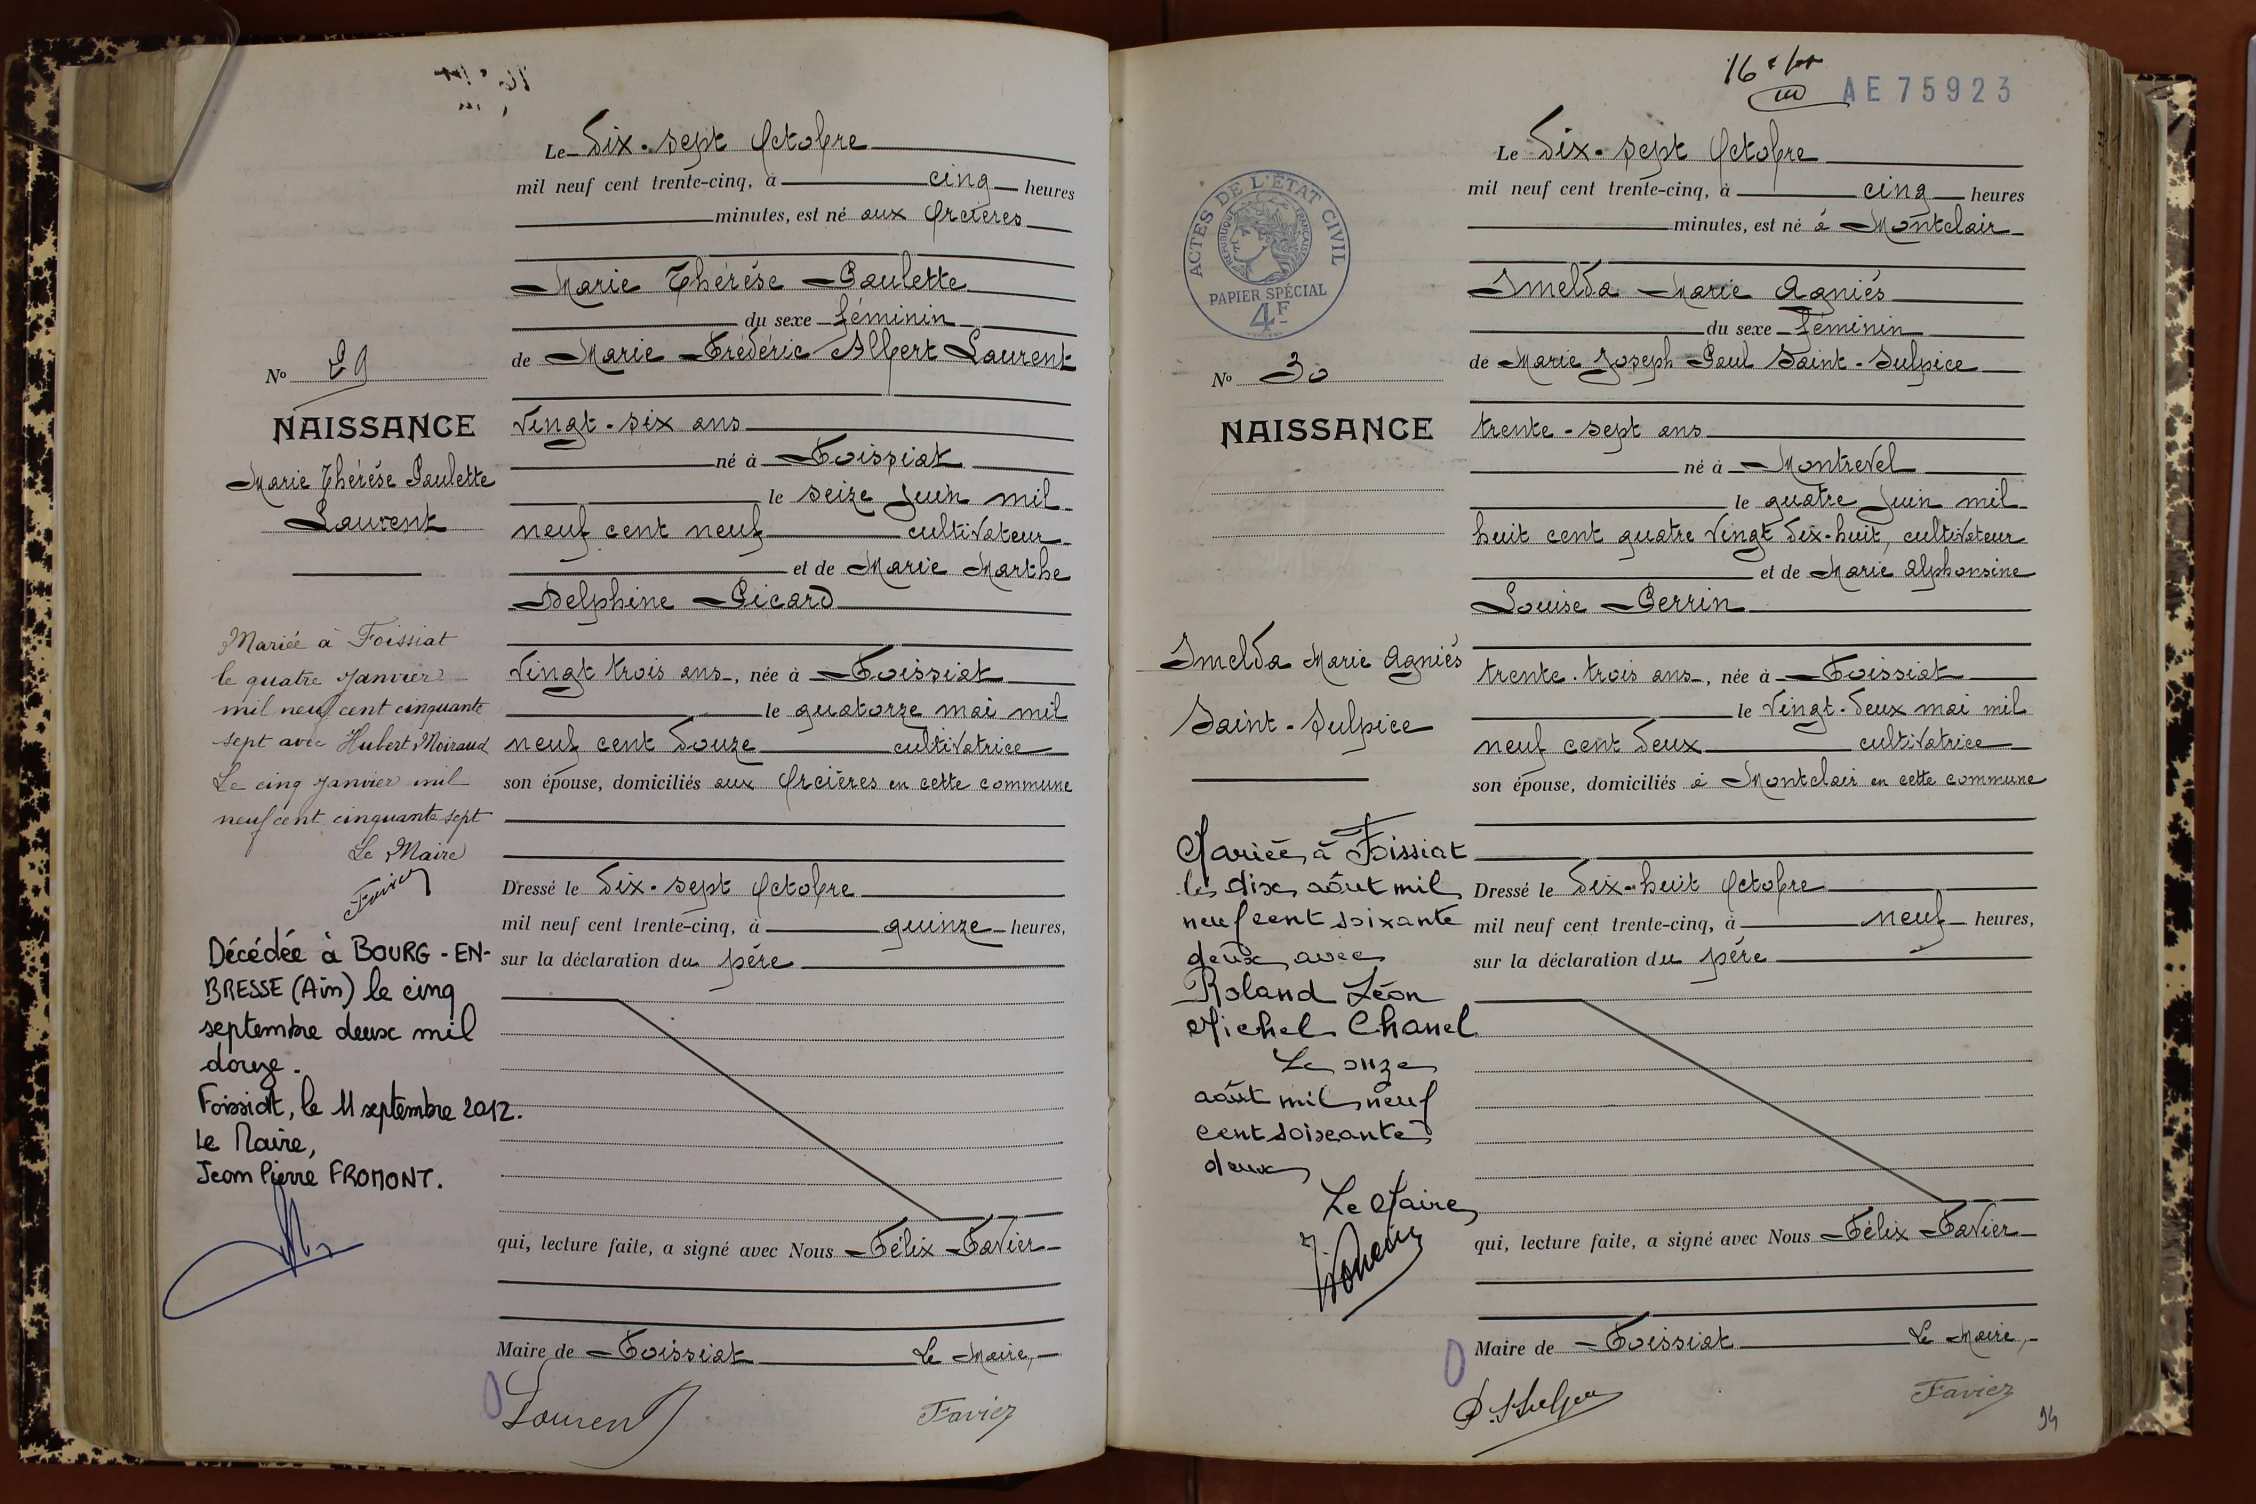 Le Dix-sept Octobre
mil neuf cent trente-cinq, à cinq heures
minutes, est né aux Orcières
Marie Thérèse Paulette
du sexe féminin
de Marie Frédéric Albert Laurent
vingt-six ans
né à Foissiat
le seize juin mil
neuf cent neuf cultivateur
et de Marie Marthe
Delphine Picard
vingt trois ans, née à Foissiat
le quatorze mai mil
neuf cent douze cultivatrice
son épouse, domiciliés aux Orcières en cette commune
Dressé le Dix-sept Octobre
mil neuf cent trente-cinq, à quinze heures,
sur la déclaration du père
qui, lecture faite, a signé avec Nous Félix Favier
Maire de Foissiat Le Maire,
Laurent
Favier
No 29
NAISSANCE
Marie Thérèse Paulette
Laurent
Mariée à Foissiat
le quatre janvier
mil neuf cent cinquante
sept avec Hubert Moiraud
Le cinq janvier mil
neuf cent cinquante sept
Le Maire
Favier
Décédée à BOURG-EN-
BRESSE (Ain) le cinq
septembre deux mil
douze.
Foissiat, le 11 septembre 2012.
Le Maire,
Jean Pierre FROMONT.
16e
AE 75923
Le Dix-sept Octobre
mil neuf cent trente-cinq, à cinq heures
minutes, est né à Montclair
Imelda Marie Agniès
du sexe féminin
de Marie Joseph Paul Saint-Sulpice
trente-sept ans
né à Montrevel
le quatre juin mil
huit cent quatre vingt dix-huit, cultivateur
et de Marie Alphonsine
Louise Perrin
trente-trois ans, née à Foissiat
le vingt-deux mai mil
neuf cent deux cultivatrice
son épouse, domiciliés à Montclair en cette commune
Dressé le Dix-huit Octobre
mil neuf cent trente-cinq, à neuf heures,
sur la déclaration du père
qui, lecture faite, a signé avec Nous Félix Favier
Maire de Foissiat Le Maire,
Favier
94
ACTES DE L'ÉTAT CIVIL
RÉPUBLIQUE FRANÇAISE
PAPIER SPÉCIAL
4F
No 30
NAISSANCE
Imelda Marie Agniès
Saint-Sulpice
Mariée à Foissiat
le dix août mil
neuf cent soixante
deux avec
Roland Léon
Michel Chanel
Le onze
août mil neuf
cent soixante
deux
Le Maire